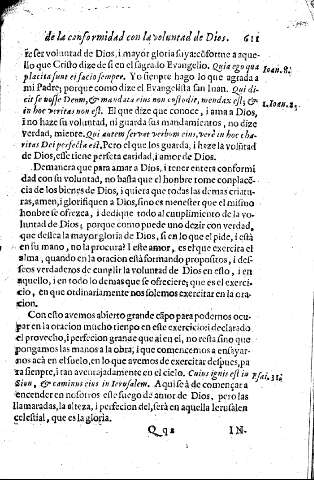 de la conformidad con la voluntad de Dios. 611
re ser voluntad de Dios, i mayor gloria suya: cõforme a aque-
llo que Cristo dize de si en el sagrado Evangelio. Quia ego quæ
placita sunt ei facio semper. Yo siempre hago lo que agrada a Ioan. 8.
mi Padre; porque como dize el Evangelista san Iuan. Qui di-
cit se nosse Deum, & mandata eius non custodit, mendax est; &
in hoc veritas non est. El que dize que conoce, i ama a Dios,
i no haze su voluntad, ni guarda sus mandamientos, no dize
verdad, miente. Qui autem servat verbum eius, verè in hoc cha-
ritas Dei perfecta est. Pero el que los guarda, i haze la volũtad
de Dios, esse tiene perfeta caridad, i amor de Dios.
Demanera que para amar a Dios, i tener entera conformi
dad con su voluntad, no basta que el hombre tome conplacẽ-
cia de los bienes de Dios, i quiera que todas las demas criatu-
ras, amen, i glorifiquen a Dios, sino es menester que el mismo
honbre se ofrezca, i dedique todo al cunplimiento de la vo-
luntad de Dios; porque como puede uno dezir con verdad,
que dessea la mayor gloria de Dios, si en lo que el pide, i està
en su mano, no la procura? I este amor, es el que exercita el
alma, quando en la oracion està formando propositos, i des-
seos verdaderos de cunplir la voluntad de Dios en esto, i en
aquello, i en todo lo demas que se ofreciere; que es el exerci-
cio, en que ordinariamente nos solemos exercitar en la ora-
cion.
Con esto avemos abierto grande cãpo para podernos ocu-
par en la oracion mucho tienpo en este exercicio: i declarado
el provecho, i perfecion grande que ai en el, no resta sino que
pongamos las manos a la obra; i que comencemos a ensayar-
nos acà en el suelo, en lo que avemos de exercitar despues, pa
ra sienpre, i tan aventajadamente en el cielo. Cuius ignis est in Isai. 31.
Sion, & caminus eius in Ierusalem. Aqui se à de començar a
encender en nosotros este fuego de amor de Dios, pero las
llamaradas, la alteza, i perfecion del, serà en aquella Ierusalen
celestial, que es la gloria.
Qq2 IN-